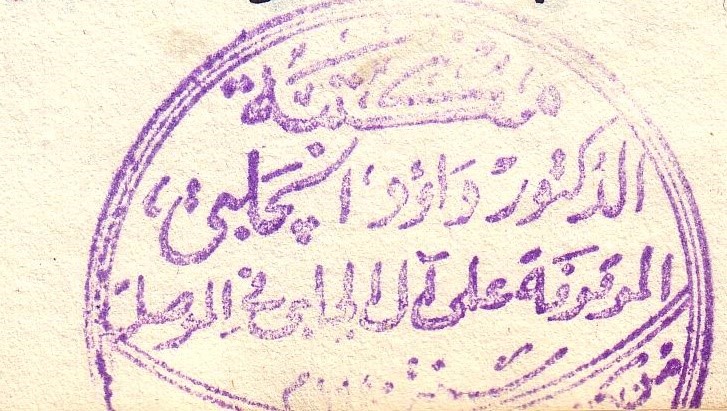 مكتبة
الدكتور داؤد الچلبي
الموقوفة على آل الچلبي في الموصل
سنة